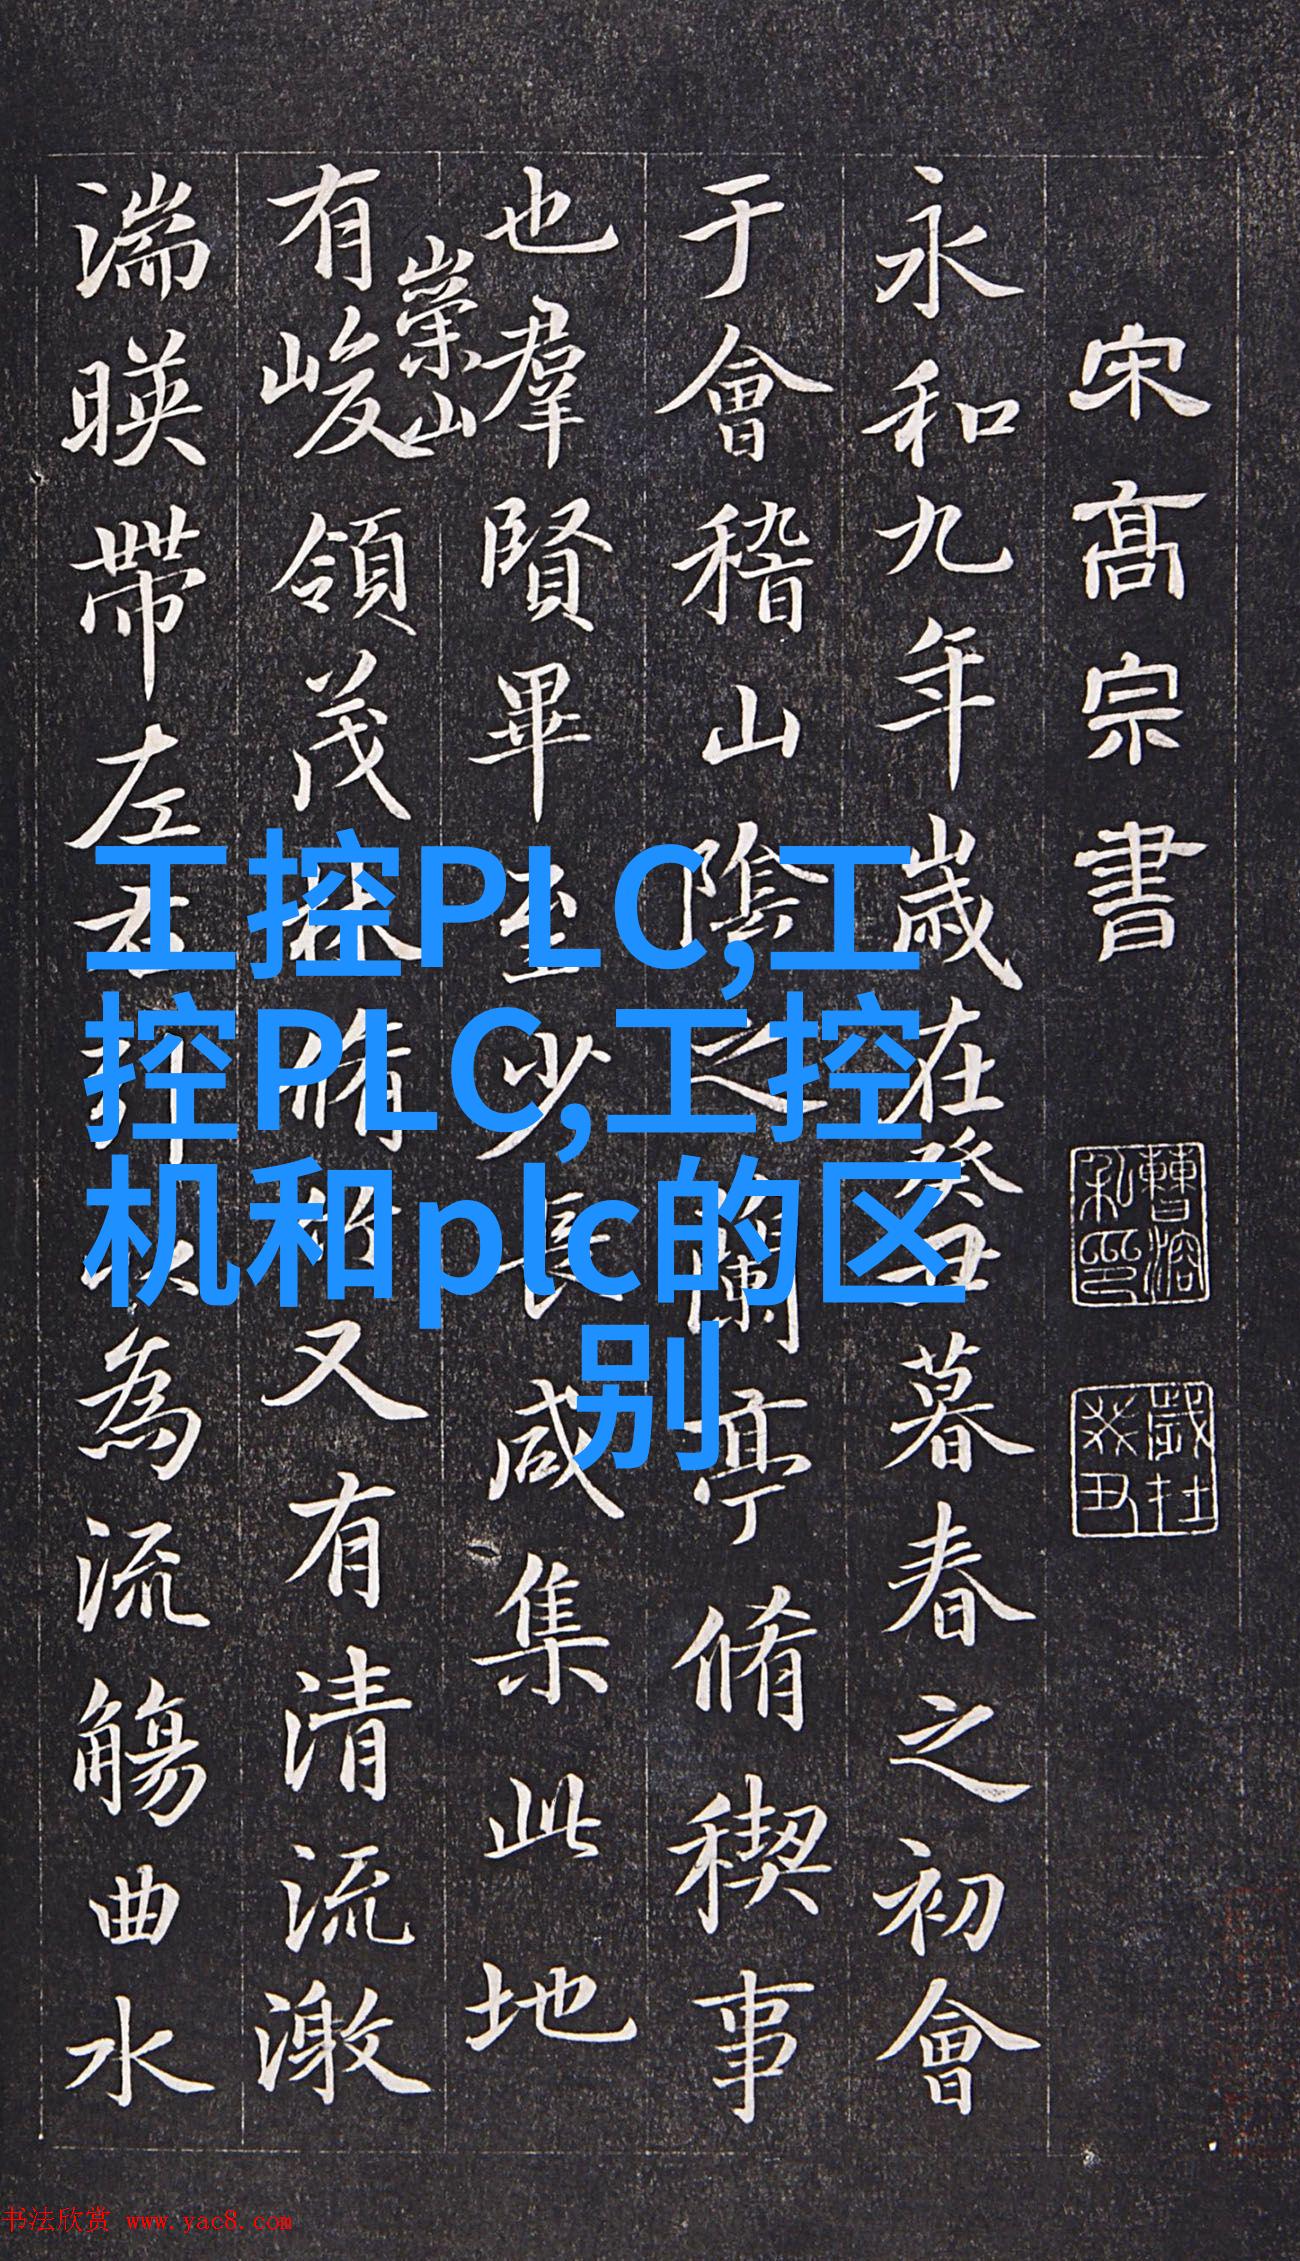 宋高宗書
曹溶私印
歲在癸丑
永和九年歲在癸丑暮春之初會
于會稽山陰之蘭亭脩禊事
也羣賢畢至少長咸集此地
有崇山峻領茂林脩竹又有清流激
湍暎帶左右引以為流觴曲水
工控PLC,工
控PLC,工控
机和plc的区
别
书法欣赏 www.yac8.com